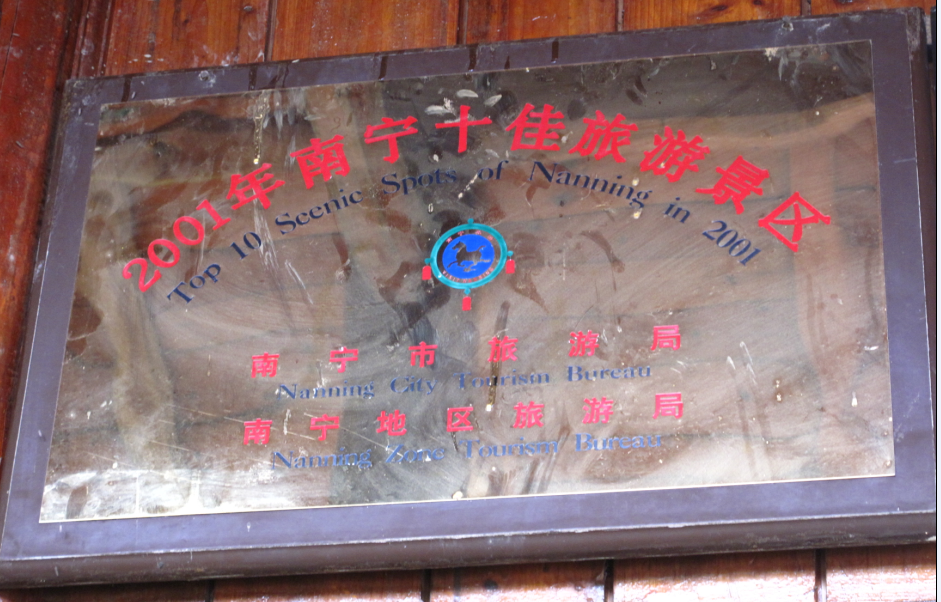 2001年南宁十佳旅游景区
Top 10 Scenic Spots of Nanning in 2001
南宁市旅游局
Nanning City Tourism Bureau
南宁地区旅游局
Nanning Zone Tourism Bureau